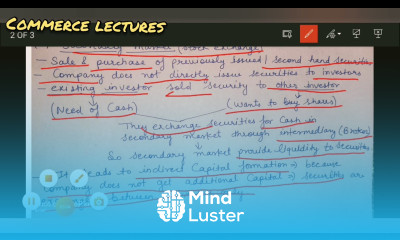 Commerce lectures
2 OF 3
Secondary Market (Stock exchange)
- Sale & purchase of previously issued / second hand securities
- Company does not directly issue securities to investors
- existing investor sold security to other investor
(Need of Cash) (wants to buy shares)
They exchange securities for Cash in
secondary market through intermediary (Broker)
So secondary market provide liquidity to securities
leads to indirect Capital formation because
company does not get additional Capital securities are
between
Mind
Luster